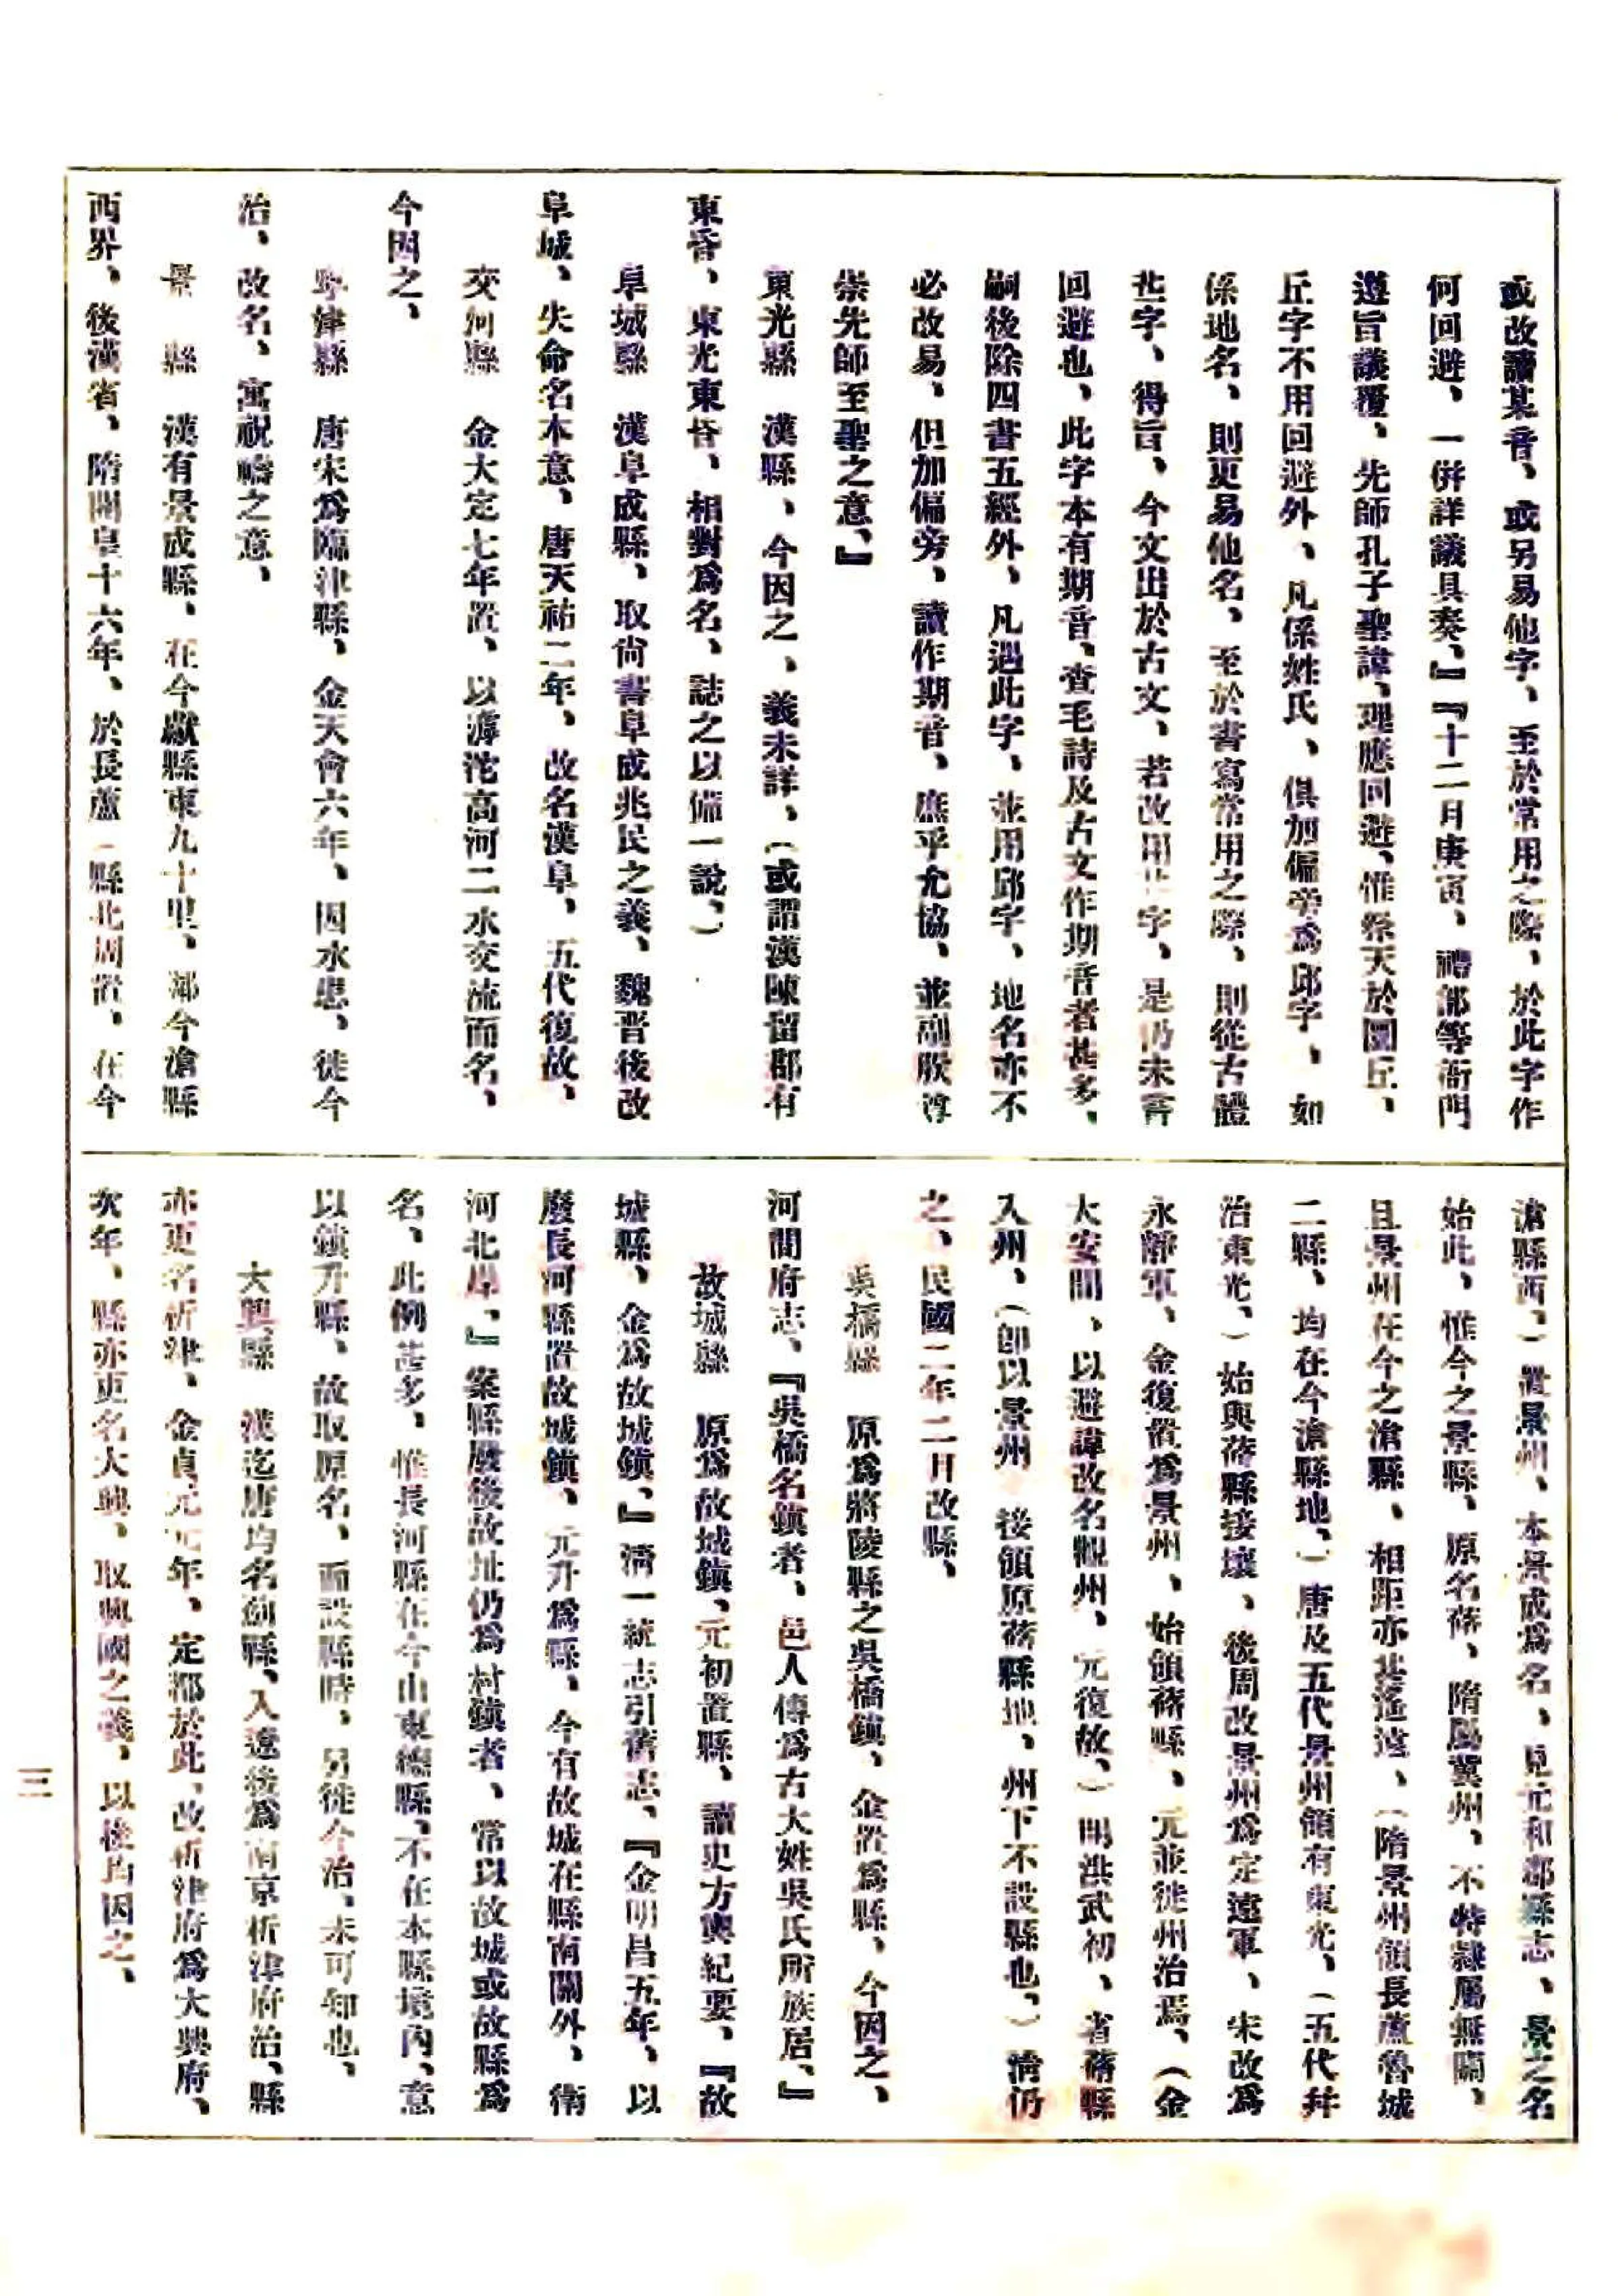 或改讀某音、或另易他字、至於常用之際、於此字作
何回避、一併詳議具奏、』『十二月庚寅、禮部等衙門
遵旨議覆、先師孔子聖諱、理應回避、惟祭天於圜丘、
丘字不用回避外、凡係姓氏、俱加偏旁爲邱字、如
係地名、則更易他名、至於書寫常用之際、則從古體
丠字、得旨、今文出於古文、若改用丠字、是仍未嘗
回避也、此字本有期音、查毛詩及古文作期音者甚多、
嗣後除四書五經外、凡遇此字、並用邱字、地名亦不
必改易、但加偏旁、讀作期音、庶乎允協、並副朕尊
崇先師至聖之意、』
東光縣　漢縣、今因之、義未詳、(或謂漢陳留郡有
東昏、東光東昏、相對爲名、誌之以備一說、)
阜城縣　漢阜成縣、取尚書阜成兆民之義、魏晉後改
阜城、失命名本意、唐天祐二年、改名漢阜、五代復故、
交河縣　金大定七年置、以滹沱高河二水交流而名、
今因之、
寧津縣　唐宋爲臨津縣、金天會六年、因水患、徙今
治、改名、寓祝禱之意、
景　縣　漢有景成縣、在今獻縣東九十里、鄰今滄縣
西界、後漢省、隋開皇十六年、於長蘆(縣北周置、在今
滄縣西、)置景州、本景成爲名、見元和郡縣志、景之名
始此、惟今之景縣、原名蓨、隋屬冀州、不特隸屬無關、
且景州在今之滄縣、相距亦甚遙遠、(隋景州領長蘆魯城
二縣、均在今滄縣地、)唐及五代景州領有東光、(五代幷
治東光、)始與蓨縣接壤、後周改景州爲定遠軍、宋改爲
永靜軍、金復置爲景州、始領蓨縣、元並徙州治焉、(金
大安間、以避諱改名觀州、元復故、)明洪武初、省蓨縣
入州、(卽以景州　接領原蓨縣地、州下不設縣也、)清仍
之、民國二年二月改縣、
吳橋縣　原爲將陵縣之吳橋鎮、金置爲縣、今因之、
河間府志、『吳橋名鎮者、邑人傳爲古大姓吳氏所族居、』
故城縣　原爲故城鎮、元初置縣、讀史方輿紀要、『故
城縣、金爲故城鎮、』清一統志引舊志、『金明昌五年、以
廢長河縣置故城鎮、元升爲縣、今有故城在縣南關外、衛
河北岸、』案縣廢後故址仍爲村鎮者、常以故城或故縣爲
名、此例甚多、惟長河縣在今山東德縣、不在本縣境內、意
以鎮升縣、故取原名、而設縣時、另徙今治、未可知也、
大興縣　漢迄唐均名薊縣、入遼後爲南京析津府治、縣
亦更名析津、金貞元元年、定都於此、改析津府爲大興府、
次年、縣亦更名大興、取興國之義、以後均因之、
三